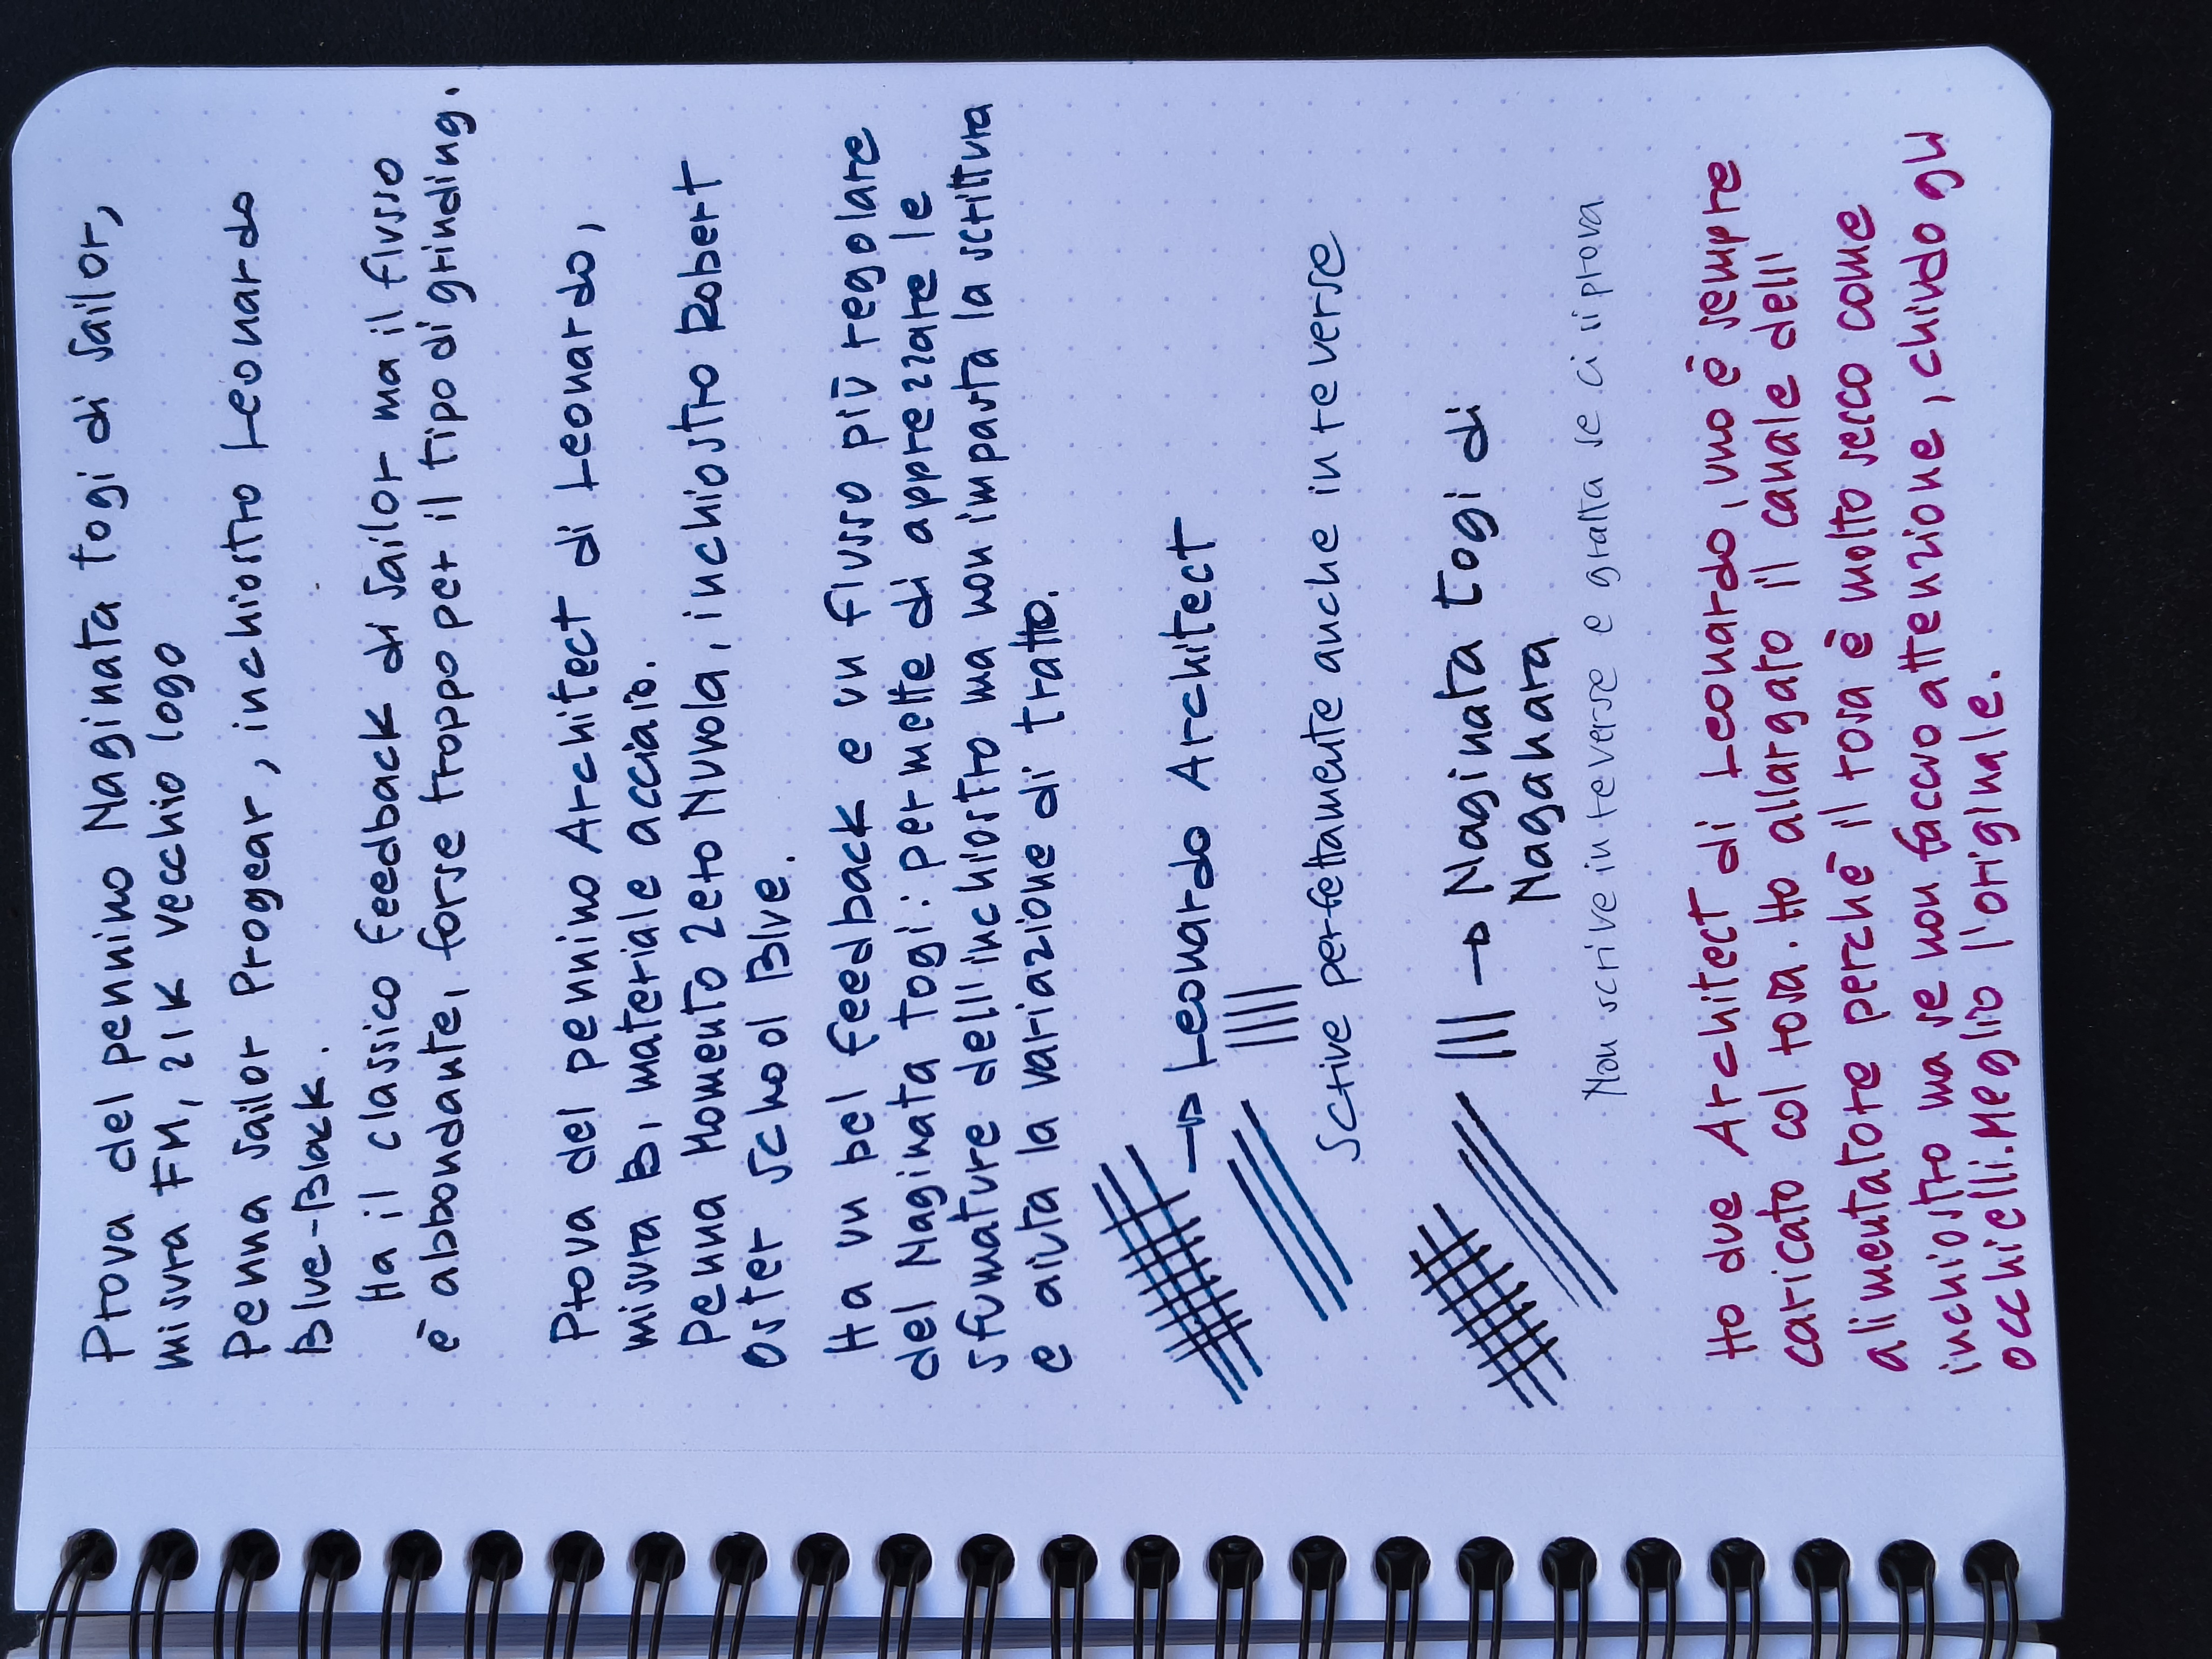 Prova del pennino Naginata togi di Sailor,
misura FM, 21K vecchio logo
Penna Sailor Progear, inchiostro Leonardo
Blue-Black.
Ha il classico feedback di Sailor ma il flusso
è abbondante, forse troppo per il tipo di grinding.
Prova del pennino Architect di Leonardo,
misura B, materiale acciaio.
Penna Momento Zero Nuvola, inchiostro Robert
Oster School Blue.
Ha un bel feedback e un flusso più regolare
del Naginata Togi: permette di apprezzare le
sfumature dell'inchiostro ma non impasta la scrittura
e aiuta la variazione di tratto.
→ Leonardo Architect
Scrive perfettamente anche in reverse
→ Naginata togi di
Nagahara
Non scrive in reverse e gratta se ci si prova
Ho due Architect di Leonardo, uno è sempre
caricato col rosa. Ho allargato il canale dell'
alimentatore perché il rosa è molto secco come
inchiostro ma se non faccio attenzione, chiudo gli
occhielli. Meglio l'originale.